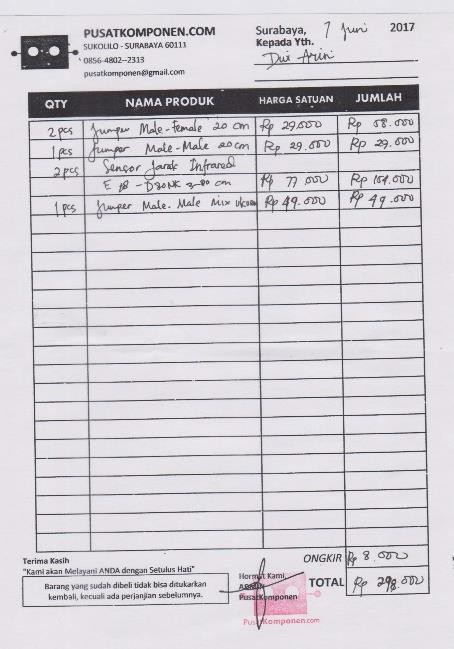 PUSATKOMPONEN.COM
SUKOLILO - SURABAYA 60111
0856-4802--2313
pusatkomponen@gmail.com
Surabaya, 7 Juni 2017
Kepada Yth.
Dwi Arini
QTY NAMA PRODUK HARGA SATUAN JUMLAH
2 pcs Jumper Male-Female 20 cm Rp 29.000 Rp 58.000
1 pcs Jumper Male-Male 20 cm Rp 29.000 Rp 29.000
2 pcs Sensor Jarak Infrared
E 18 - D80NK 3-80 cm Rp 77.000 Rp 154.000
1 pcs Jumper Male-Male Mix Rp 49.000 Rp 49.000
Terima Kasih
"Kami akan Melayani ANDA dengan Setulus Hati"
Barang yang sudah dibeli tidak bisa ditukarkan
kembali, kecuali ada perjanjian sebelumnya.
ONGKIR Rp 8.000
TOTAL Rp 298.000
Hormat Kami,
PusatKomponen
PusatKomponen.com